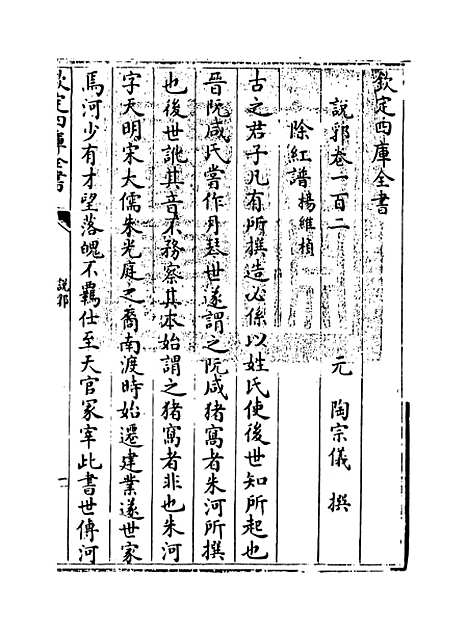 欽定四庫全書
說郛卷一百二
元 陶宗儀 撰
除紅譜楊維楨
古之君子凡有所撰造必係以姓氏使後世知所起也
晉阮咸氏嘗作丹琴世遂謂之阮咸猪窩者朱河所撰
也後世訛其音不務察其本始謂之猪窩者非也朱河
字天明宋大儒朱光庭之裔南渡時始遷建業遂世家
焉河少有才望落魄不羈仕至天官冢宰此書世傳河
欽定四庫全書
說郛
一